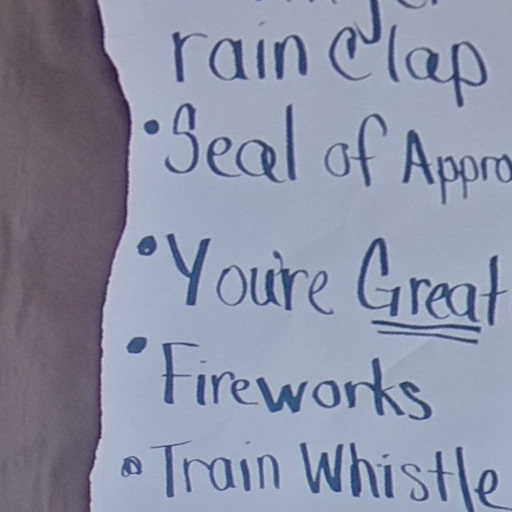 rain Clap
• Seal of Appro
• You're Great
• Fireworks
• Train Whistle